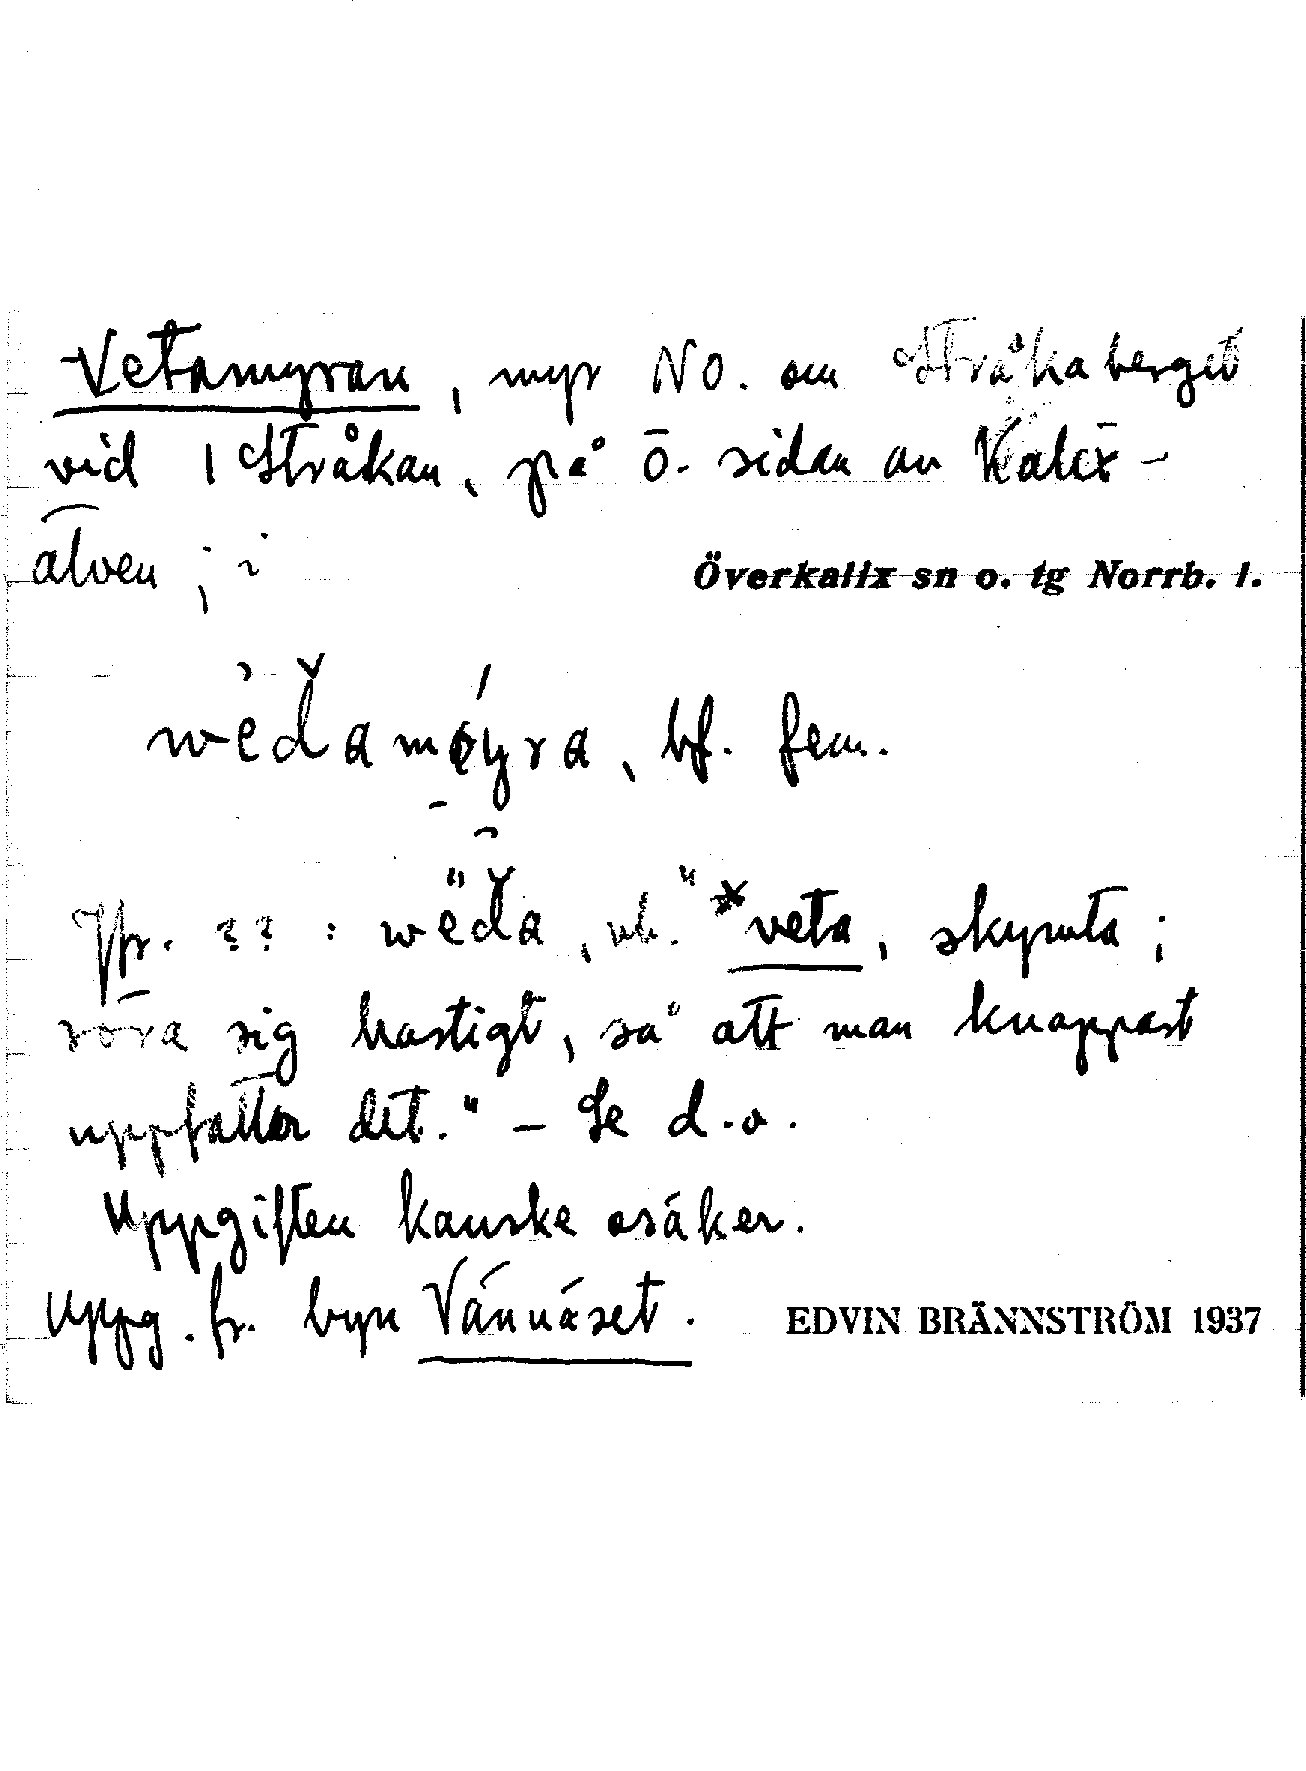 Vetamyran, myr NO. om Stråkaberget
vid 1 Stråkan, på ö. sidan av Kalix-
älven; i Överkalix sn o. tg Norrb. l.
wedamøyra, bf. fem.
Jfr. ?? : weda, vb. "*veta, skymta;
röra sig hastigt, så att man knappast
uppfattar det." – Se d.o.
Uppgiften kanske osäker.
Uppg. fr. byn Vännäset. EDVIN BRÄNNSTRÖM 1937